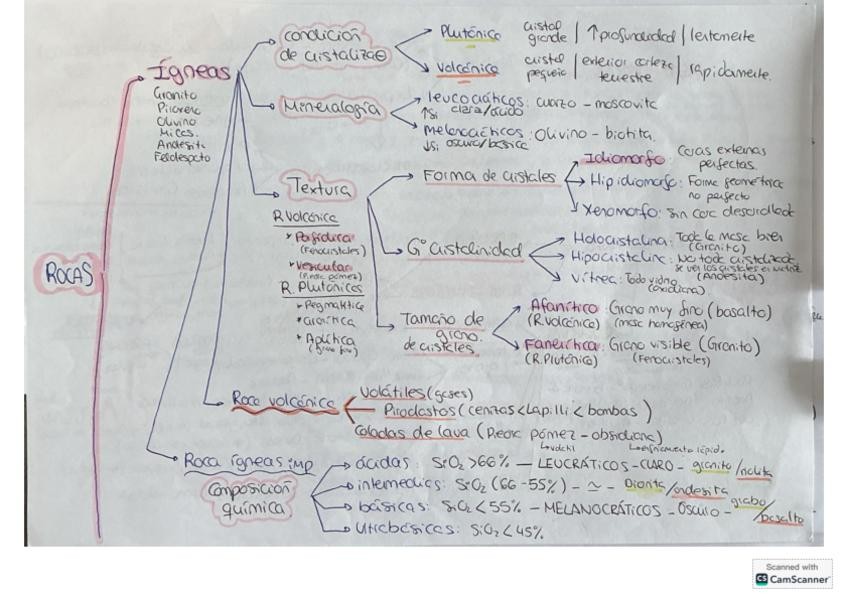 ROCAS
Ígneas
Granito
Piroxeno
Olivino
Micas.
Andesita
Feldespato
condición
de cristalizaꓳ
Plutónica
cristal
grande | ↑profundidad | lentamente
Volcánica
cristal
pequeño | exterior corteza
terrestre | rápidamente.
Mineralogía
leucocráticos: cuarzo - moscovita
↑Si clara/ácido
Melanocráticos: Olivino - biotita.
↓Si oscura/básica
Textura
R.Volcánica
Porfídica
(Fenocristales)
Vesicular
(Piedra pómez)
R. Plutónicas
Pegmatítica
Granítica
Aplítica
(grano fino)
Forma de cristales
Idiomorfo: Caras externas
perfectas.
Hipidiomorfo: Forma geométrica
no perfecta
Xenomorfo: Sin cara desarrollada
Gº cristalinidad
Holocristalina: Toda la masa bien
(Granito)
Hipocristalina: No toda cristalizada
se ven los cristales en matriz
(Andesita)
Vítrea: Todo vidrio
(obsidiana)
Tamaño de
grano.
de cristales
Afanítico: Grano muy fino (basalto)
(R.Volcánica) (masa homogénea)
Fanerítica: Grano visible (Granito)
(R.Plutónica) (Fenocristales)
Roca volcánica
Volátiles (gases)
Piroclastos (cenizas<Lapilli<bombas)
Coladas de lava (Piedra pómez - obsidiana)
Roca ígneas imp
Composición
química
ácidas: SiO₂ >66% — LEUCRÁTICOS - CLARO - granito/riolita
intermedias: SiO₂ (66-55%) - ~ - Diorita/andesita
básicas: SiO₂ < 55% - MELANOCRÁTICOS - Oscuro - grabo/basalto
Ultrabásicas: SiO₂ < 45%
Scanned with
CS CamScanner